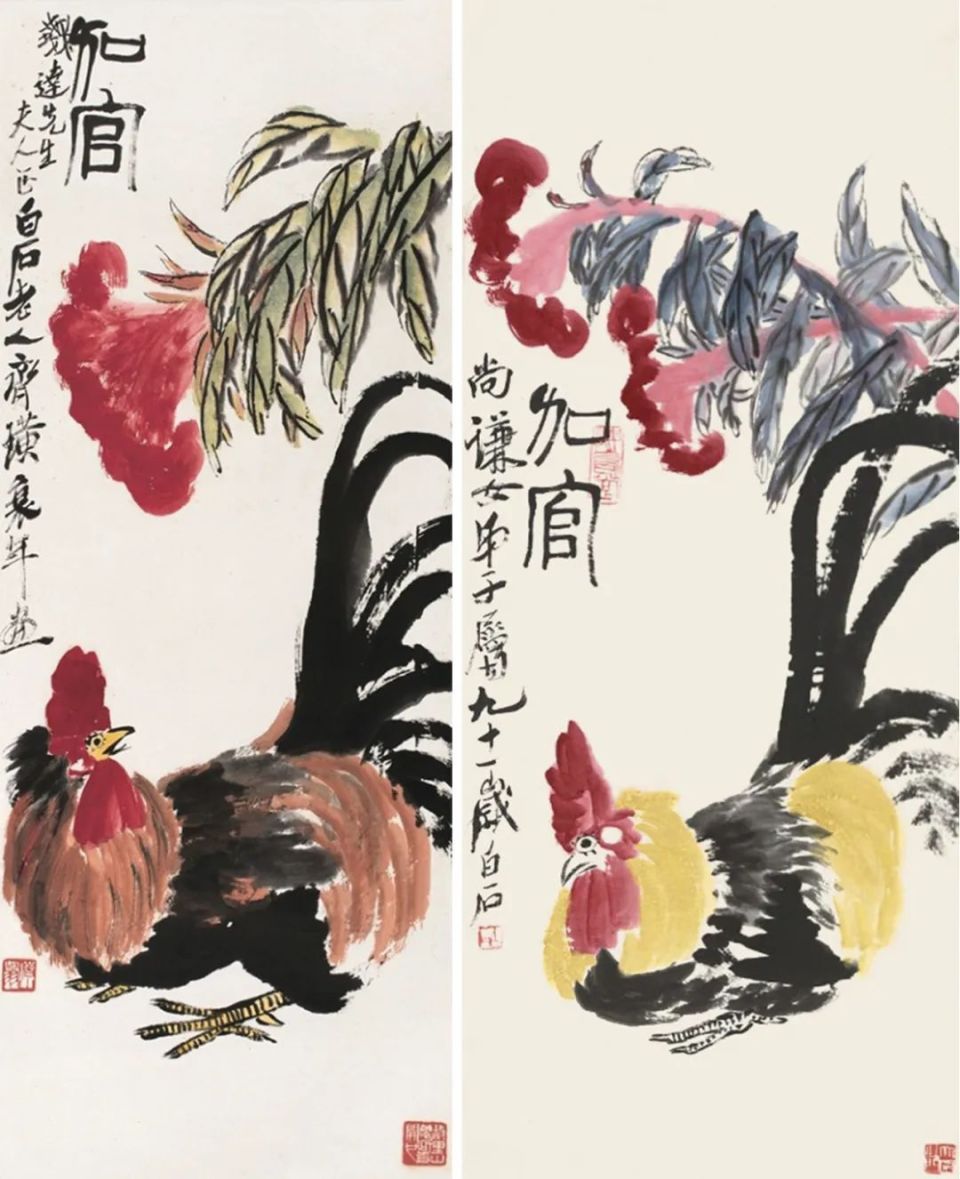 加官
達先生
夫人正
白石老人齊璜衰年画
加官
尚謙女弟子屬
九十一歲白石